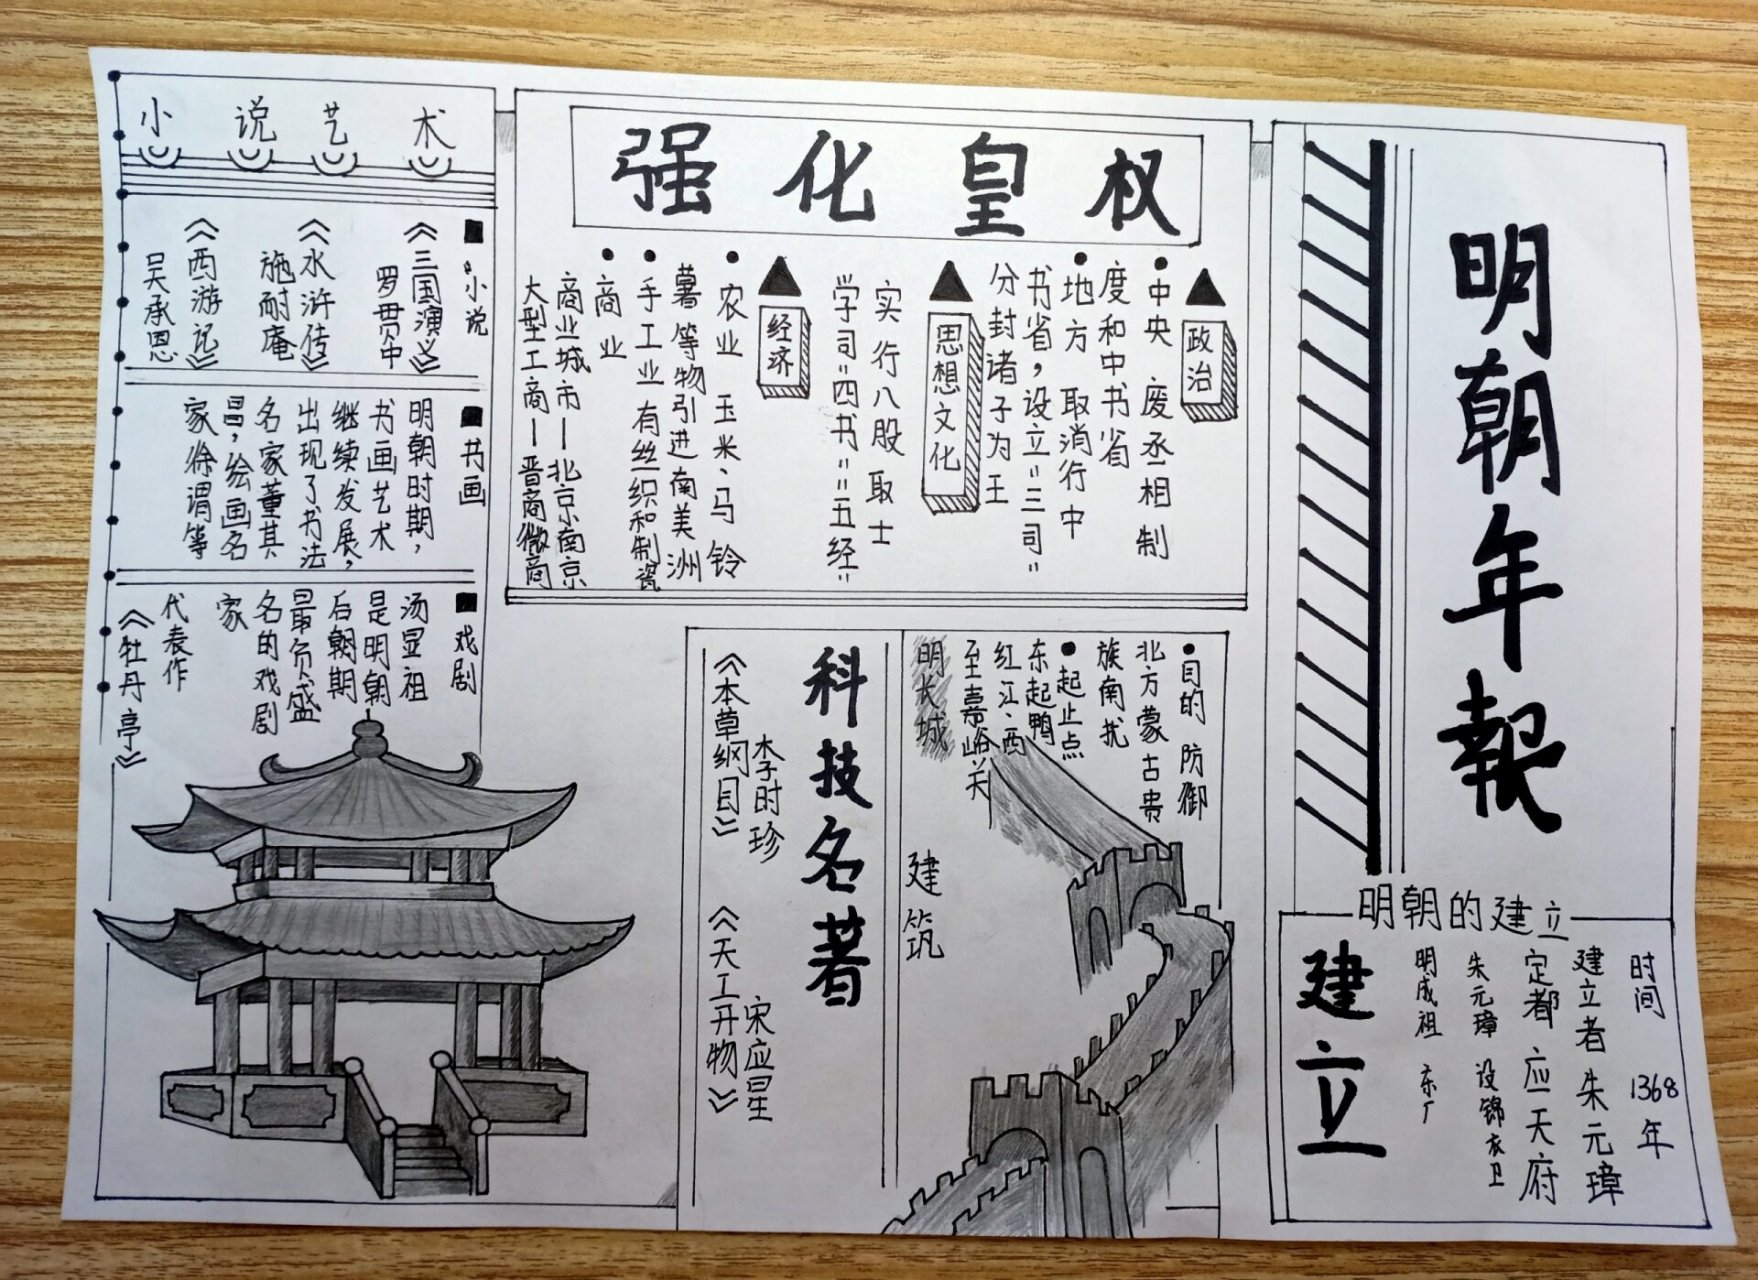 明朝年報
明朝的建立
建立
时间 1368年
建立者 朱元璋
定都 应天府
朱元璋 设锦衣卫
明成祖 东厂
强化皇权
政治
•中央 废丞相制
度和中书省
•地方 取消行中
书省，设立"三司"
分封诸子为王
思想文化
实行八股取士
学司"四书""五经"
经济
•农业 玉米、马铃
薯等物引进南美洲
•手工业 有丝织和制瓷
•商业
商业城市—北京南京
大型工商—晋商徽商
•目的 防御
北方蒙古贵
族南扰
•起止点
东起鸭
红江、西
至嘉峪关
明长城
建筑
科技名著
李时珍
《本草纲目》
宋应星
《天工开物》
小说艺术
■小说
《三国演义》
罗贯中
《水浒传》
施耐庵
《西游记》
吴承恩
■书画
明朝时期，
书画艺术
继续发展，
出现了书法
名家董其
昌，绘画名
家徐谓等
■戏剧
汤显祖
是明朝
后朝期
最负盛
名的戏剧
家
代表作
《牡丹亭》